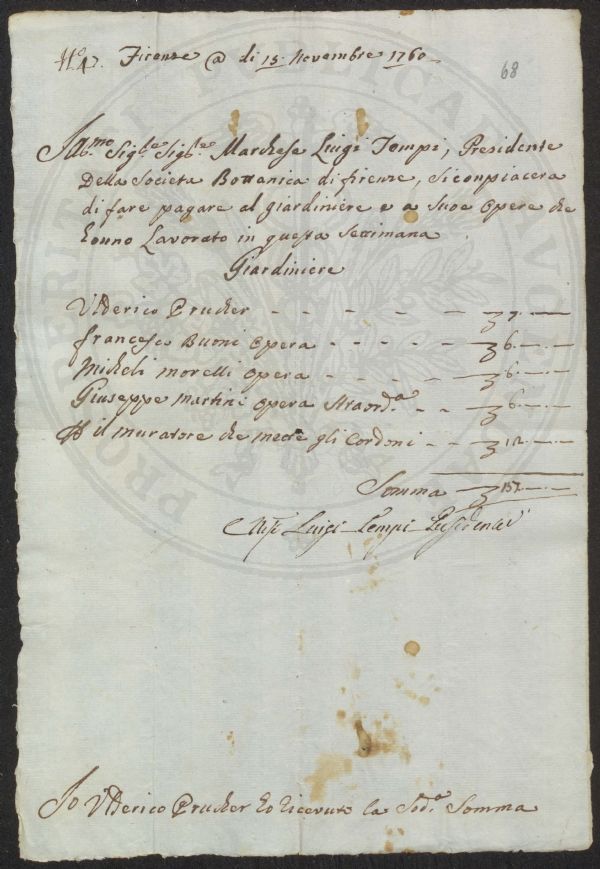 N.º 47. Firenze @ di 15. Novembre 1760
68
Ill.mo Sig.re Sig.re Marchese Luigi Tempi, Presidente
Della Societa Bottanica di firenze, Si conpiacera
di fare pagare al giardiniere e a Suoe Opere che
hanno Lavorato in questa Settimana
Giardiniere
Ulderico Prucker - - - - - - 7.
francesco Buoni Opera - - - - - 6.
Micheli Morelli Opera - - - - - 6.
Giuseppe Martini Opera Straord.ª - - 6.
il Muratore che mette gli Cordoni - - 12.
Somma 37.
Luigi Tempi Presidente
Io Ulderico Prucker ho ricevuto la Sod.ª Somma